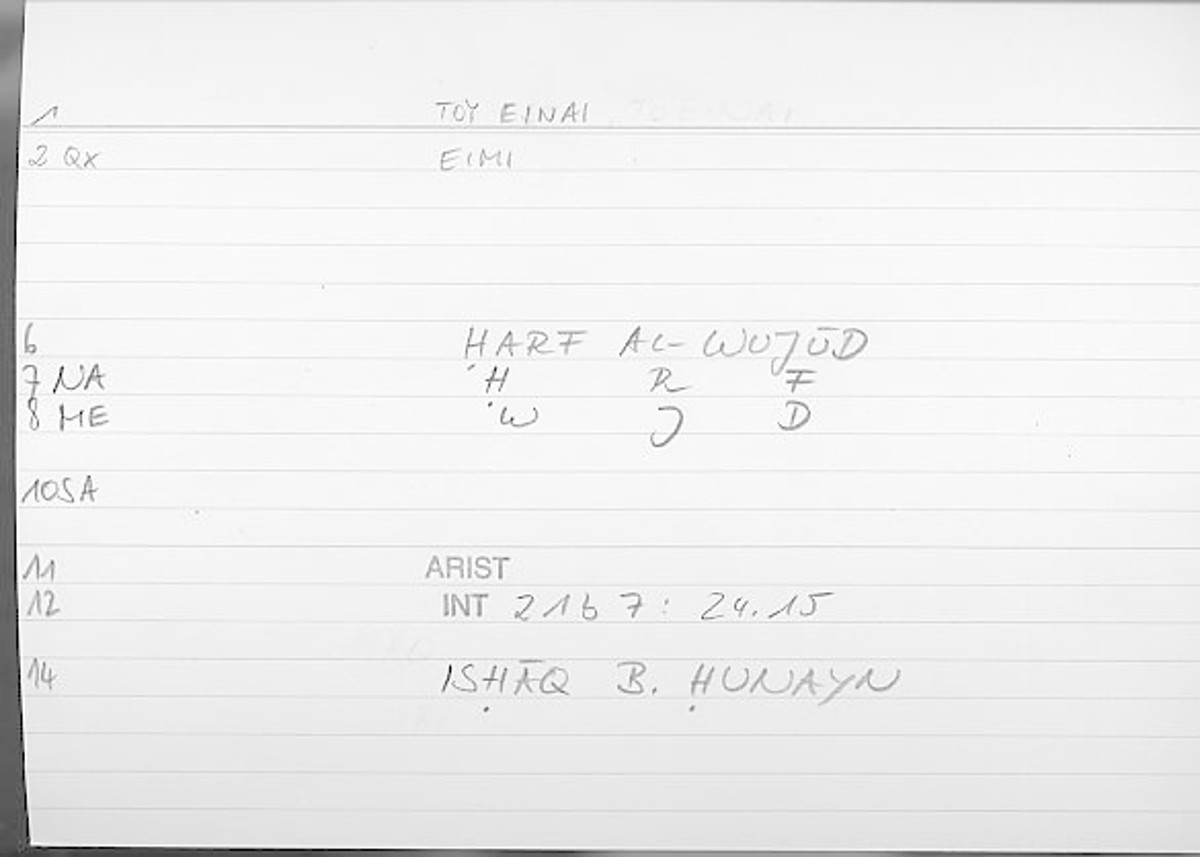 1 TOŸ EINAI
2 QX EIMI
6 ḤARF AL-WUJŪD
7 NA Ḥ R F
8 ME W J D
10 SA
11 ARIST
12 INT 21b 7: 24.15
14 ISḤĀQ B. ḤUNAYN